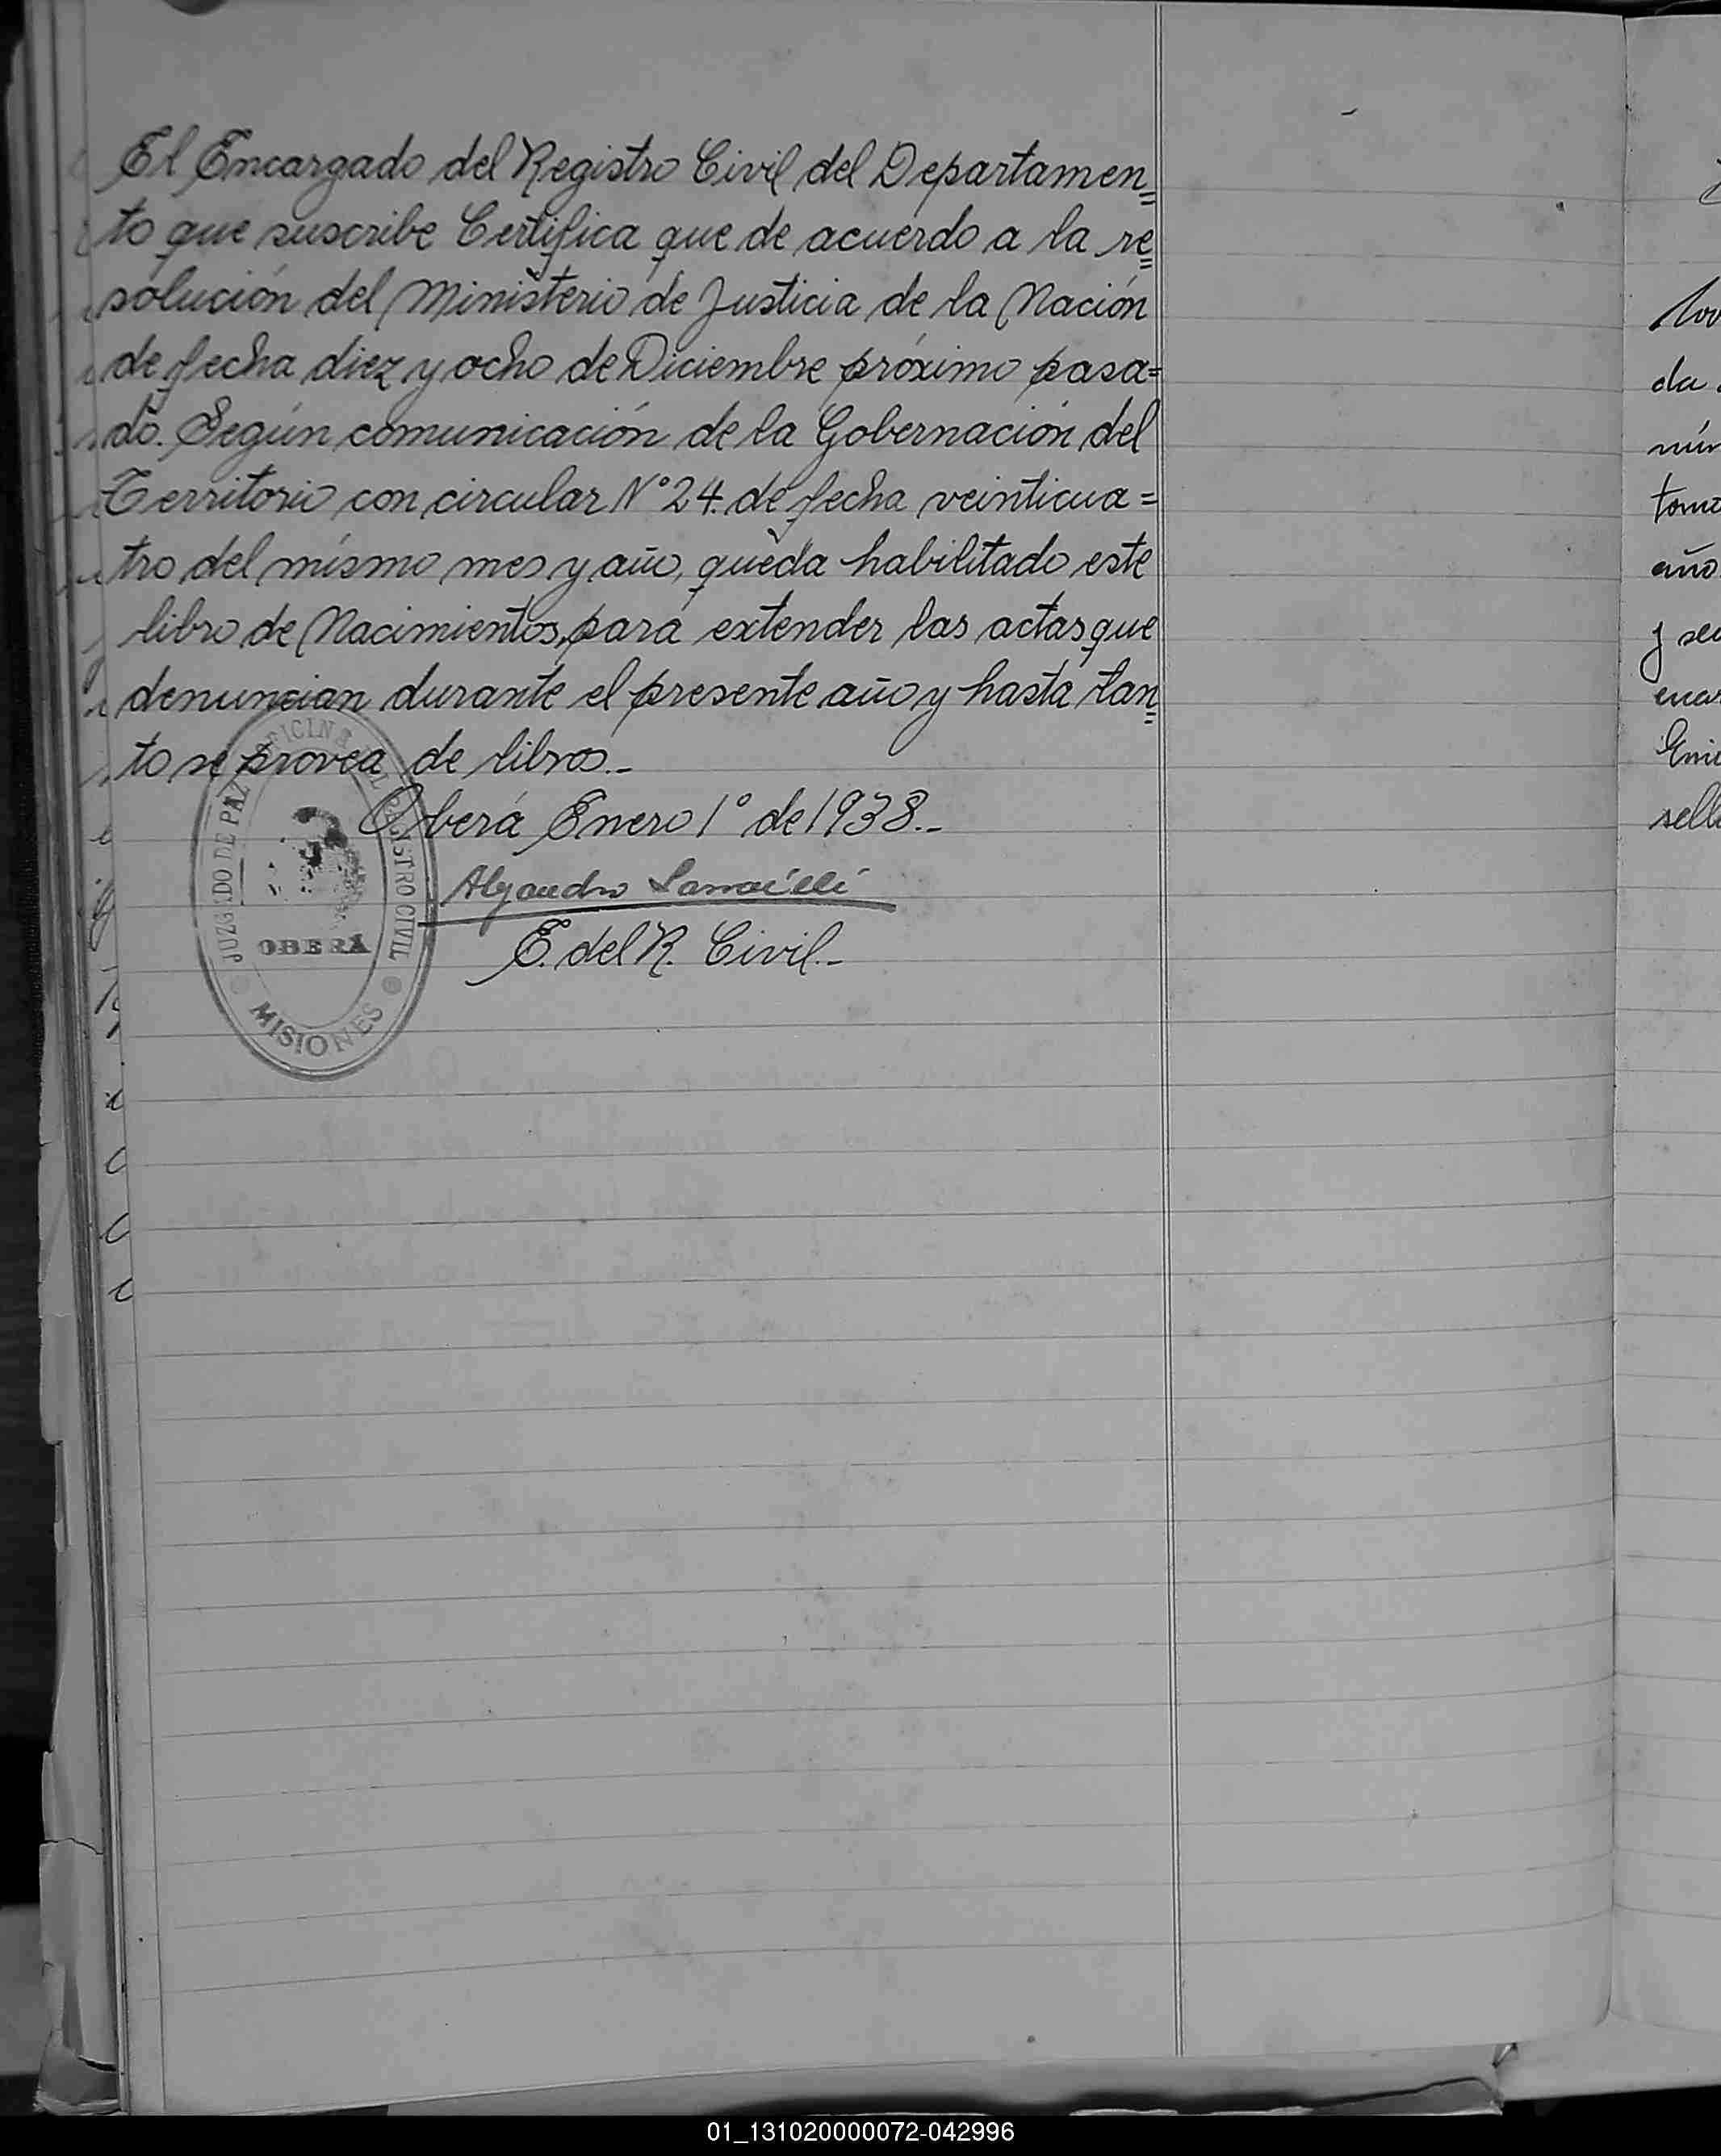 El Encargado del Registro Civil del Departamen=
to que suscribe Certifica que de acuerdo a la re=
solución del Ministerio de Justicia de la Nación
de fecha diez y ocho de Diciembre próximo pasa=
do. Según comunicación de la Gobernación del
Territorio con circular Nº 24. de fecha veinticua=
tro del mismo mes y año, queda habilitado este
libro de Nacimientos, para extender las actas que
denuncian durante el presente año y hasta tan=
to se provea de libros.-
Oberá Enero 1º de 1938.-
Alejandro
E. del R. Civil.-
JUZGADO DE PAZ OFICINA DEL REGISTRO CIVIL
OBERA
MISIONES
da
año
01_131020000072-042996